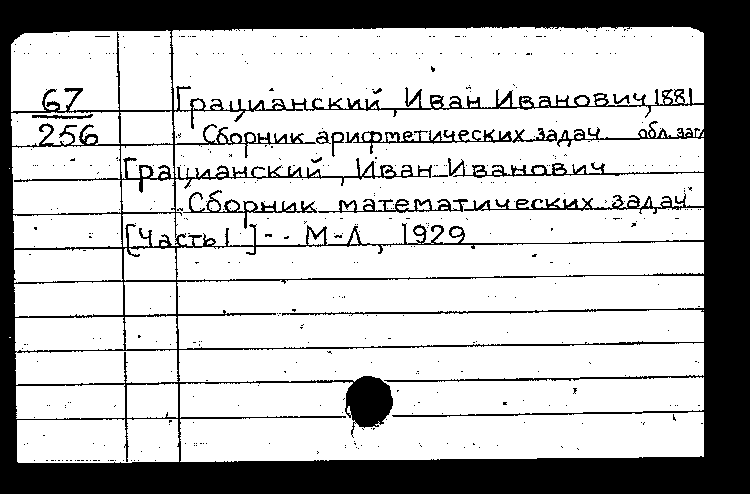 67 Грацианский, Иван Иванович, 1881
256 Сборник арифметических задач обл. заг
Грацианский, Иван Иванович
Сборник математических задач
[Часть 1 ]-- М-Л, 1929.